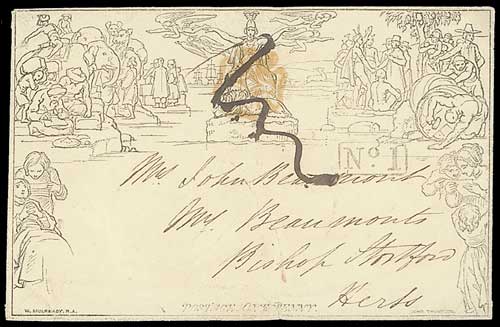 No 1
Mr John Beaumont
Mrs Beaumonts
Bishop Stortford
Herts
W. MULREADY, R.A.